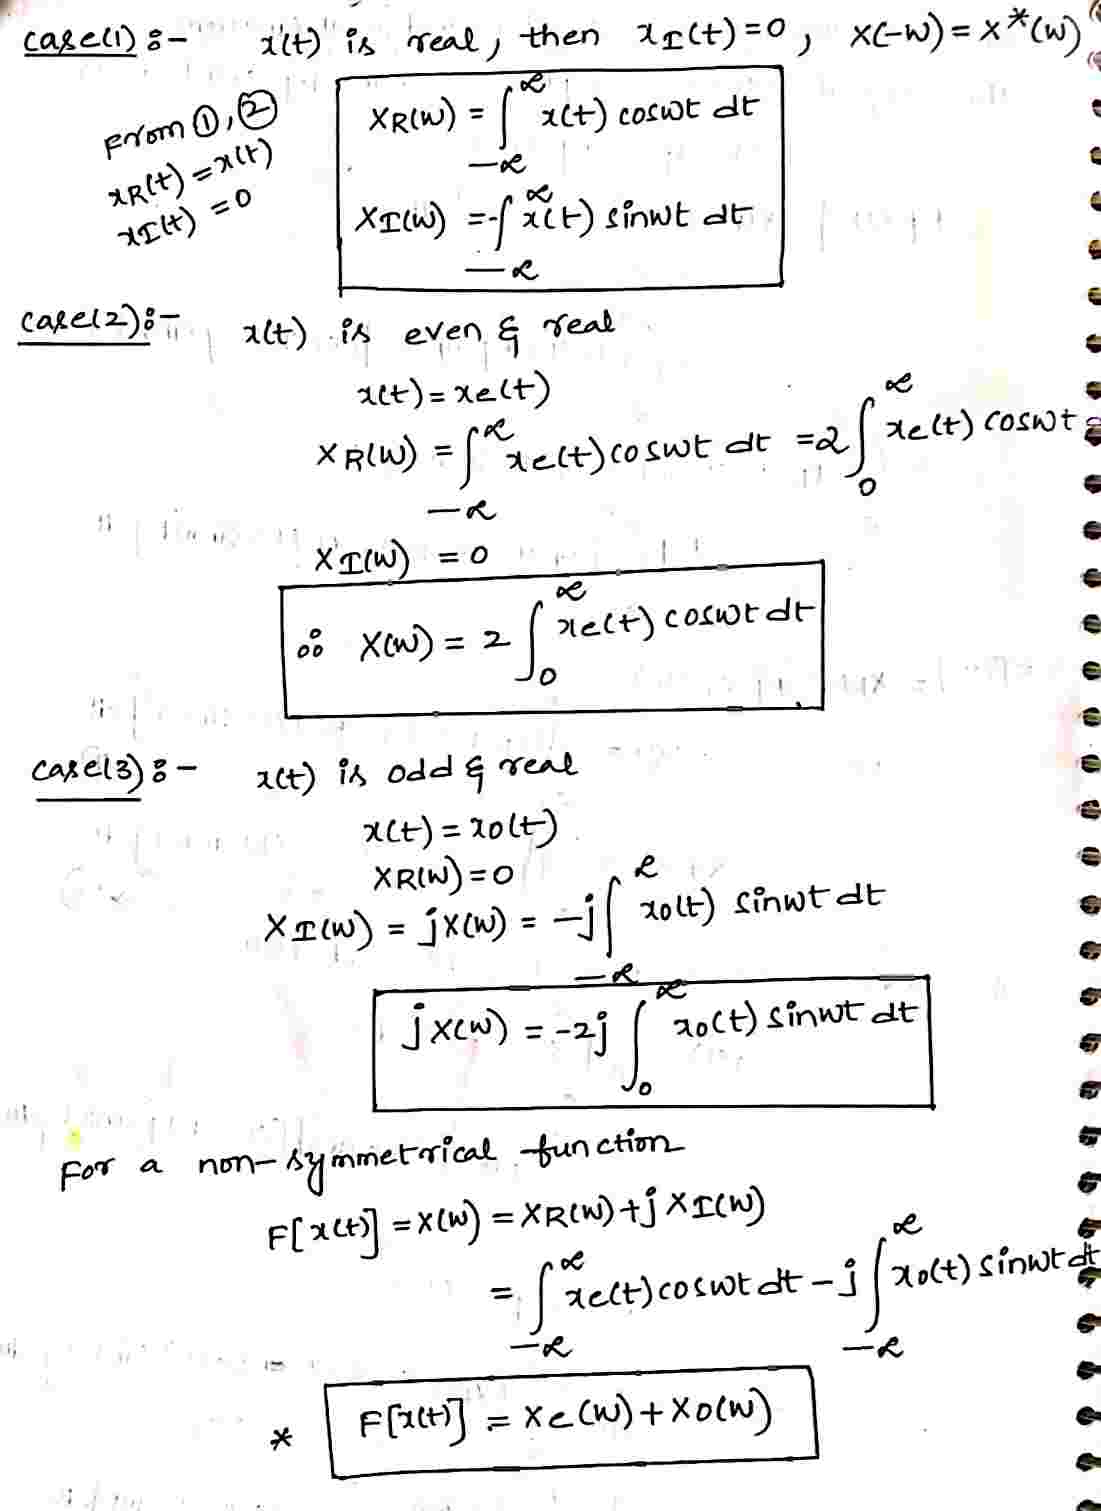 case(1) :- x(t) is real, then xI(t)=0, X(-w) = X*(w)
From ①,②
xR(t) = x(t)
xI(t) = 0
XR(w) = ∫_{-∞}^{∞} x(t) coswt dt
XI(w) = -∫_{-∞}^{∞} x(t) sinwt dt
case(2) :- x(t) is even & real
x(t) = xe(t)
XR(w) = ∫_{-∞}^{∞} xe(t) coswt dt = 2∫_{0}^{∞} xe(t) coswt
XI(w) = 0
∴ X(w) = 2 ∫_{0}^{∞} xe(t) coswt dt
case(3) :- x(t) is odd & real
x(t) = xo(t)
XR(w) = 0
XI(w) = jX(w) = -j∫_{-∞}^{∞} xo(t) sinwt dt
jX(w) = -2j ∫_{0}^{∞} xo(t) sinwt dt
For a non-symmetrical function
F[x(t)] = X(w) = XR(w) + j XI(w)
= ∫_{-∞}^{∞} xe(t) coswt dt - j∫_{-∞}^{∞} xo(t) sinwt dt
* F[x(t)] = Xe(w) + Xo(w)